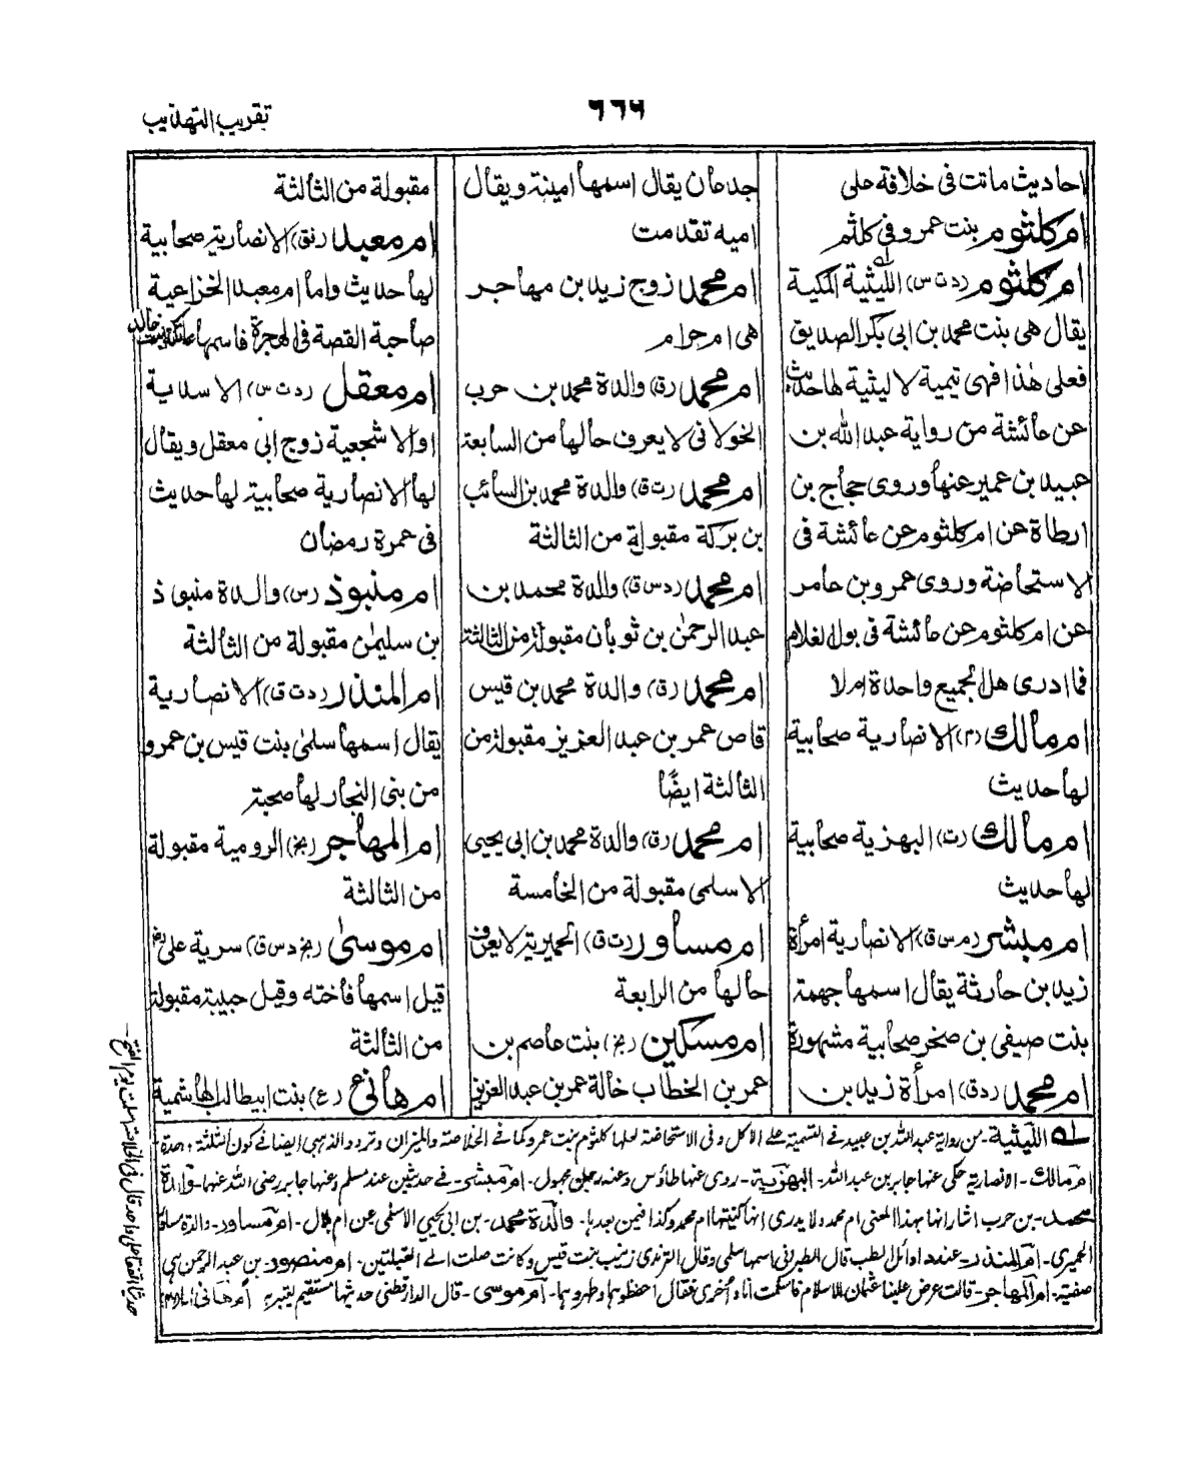 تقريب التهذيب
٦٦٦
احاديث ماتت فى خلافة على
ام كلثوم بنت عمرو فى كلثم
ام كلثوم (د ت س) الليثية المكية
يقال هى بنت محمد بن ابى بكر الصديق
فعلى هذا فهى تيمية لا ليثية لها حديث
عن عائشة من رواية عبد الله بن
عبيد بن عمير عنها وروى حجاج بن
ارطاة عن ام كلثوم عن عائشة فى
الاستحاضة وروى عمرو بن عامر
عن ام كلثوم عن عائشة فى بول الغلام
فما ادرى هل الجميع واحدة ام لا
ام مالك (م) الانصارية صحابية
لها حديث
ام مالك (ت) البهزية صحابية
لها حديث
ام مبشر (م س ق) الانصارية امرأة
زيد بن حارثة يقال اسمها جهمة
بنت صيفى بن صخر صحابية مشهورة
ام محمد (د ق) امرأة زيد بن
جدعان يقال اسمها امينة ويقال
اميه تقدمت
ام محمد زوج زيد بن مهاجر
هى ام حرام
ام محمد (ق) والدة محمد بن حرب
الخولانى لا يعرف حالها من السابعة
ام محمد (ت ق) والدة محمد بن السائب
بن بركة مقبولة من الثالثة
ام محمد (د س ق) والدة محمد بن
عبد الرحمٰن بن ثوبان مقبولة من الثالثة
ام محمد (ق) والدة محمد بن قيس
قاص عمر بن عبد العزيز مقبولة من
الثالثة ايضًا
ام محمد (ق) والدة محمد بن ابى يحيى
الاسلمى مقبولة من الخامسة
ام مساور (ت ق) الحميرية لا يعرف
حالها من الرابعة
ام مسكين (بخ) بنت عاصم بن
عمر بن الخطاب خالة عمر بن عبد العزيز
مقبولة من الثالثة
ام معبد (ق) الانصارية صحابية
لها حديث واما ام معبد الخزاعية
صاحبة القصة فى الهجرة فاسمها عاتكة بنت خالد
ام معقل (د ت س) الاسدية
او الاشجعية زوج ابى معقل ويقال
لها الانصارية صحابية لها حديث
فى عمرة رمضان
ام منبوذ (س) والدة منبوذ
بن سليمٰن مقبولة من الثالثة
ام المنذر (د ت ق) الانصارية
يقال اسمها سلمىٰ بنت قيس بن عمرو
من بنى النجار لها صحبة
ام المهاجر (بخ) الرومية مقبولة
من الثالثة
ام موسىٰ (بخ د س ق) سرية على
قيل اسمها فاخته وقيل حبيبة مقبولة
من الثالثة
ام هانئ (ع) بنت ابيطالب الهاشمية
له الليثية - من رواية عبد الله بن عبيد فى التسمية على الاكل وفى الاستحاضة لعلها كلثوم بنت عمرو كما فى الخلاصة والميزان وتردد الذهبى ايضا فى كون الثلثة واحدة
ام مالك - الانصارية حكى عنها جابر بن عبد الله - البهزية - روى عنها طاؤس وعنه رجل مجهول - ام مبشر - فى حديثين عند مسلم وعنها جابر رضى الله عنهما - والدة
محمد - بن حرب اشار انها بهذا المعنى ام محمد ولا يدرى انها كنيتها ام محمد وكذا فيمن بعدها - والدة محمد - بن ابى يحيى الاسلمى عن ام بلال - ام مساور - والدة مساور
الحميرى - ام المنذر - عند د اوائل الطب قال الطبرانى اسمها سلمى وقال الترمذى زينب بنت قيس وكانت صلت الى القبلتين - ام منصور - بن عبد الرحمن هى
صفية - ام المهاجر - قالت عرض علينا عثمان الاسلام فاسلمت انا واخرى فقال احفظوها وطهروها - ام موسى - قال الدارقطنى حديثها مستقيم يعتبر به ام هانى